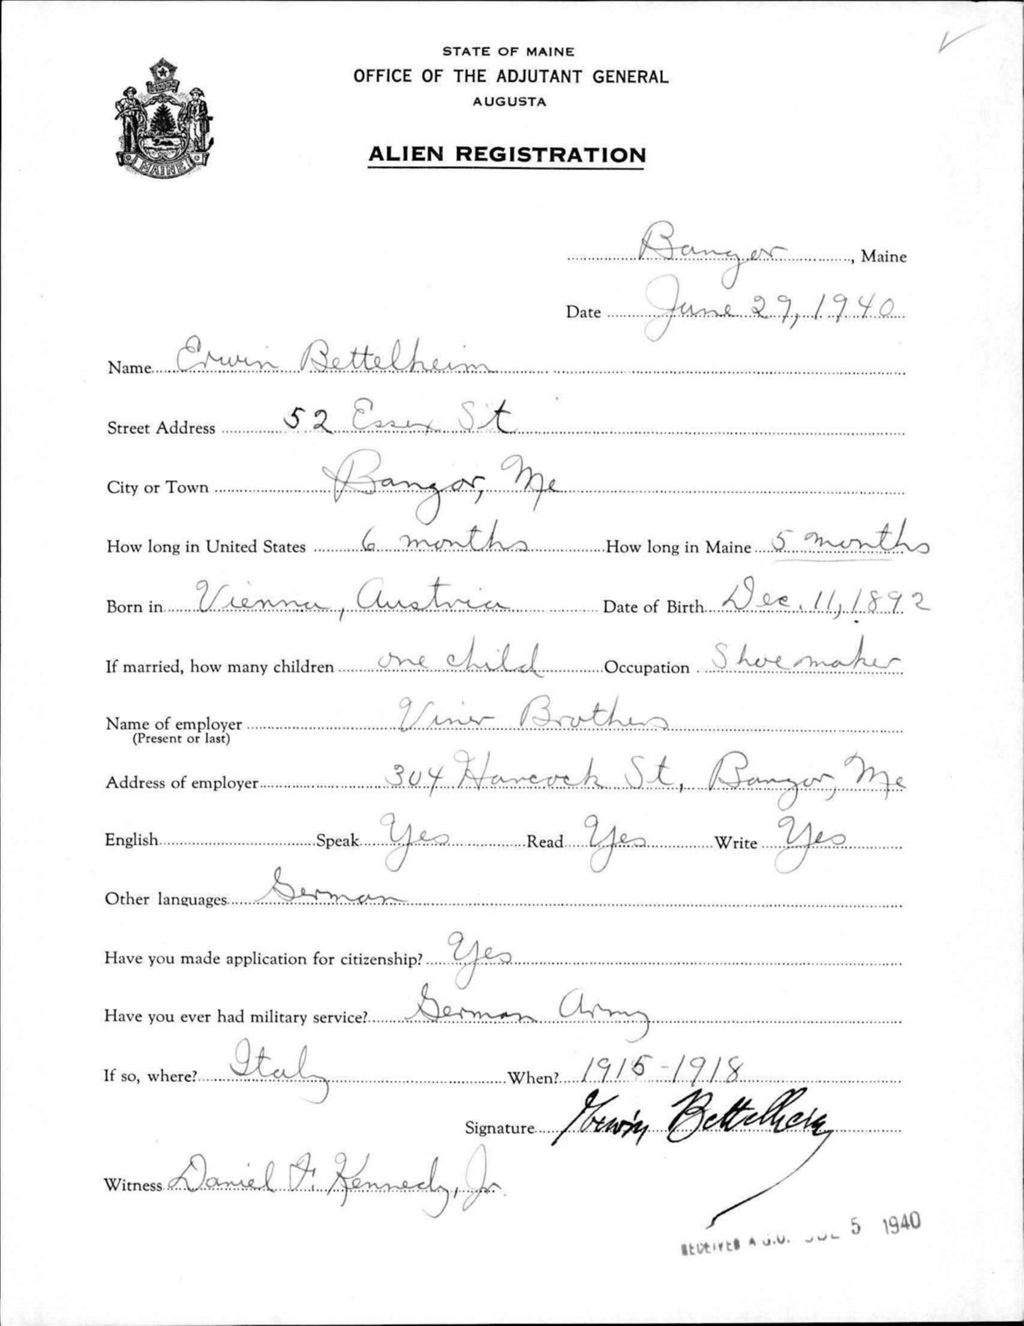 STATE OF MAINE
OFFICE OF THE ADJUTANT GENERAL
AUGUSTA
ALIEN REGISTRATION
MAINE
Bangor, Maine
Date June 29, 1940
Name Erwin Bettelheim
Street Address 52 Essex St
City or Town Bangor, Me
How long in United States 6 months How long in Maine 5 months
Born in Vienna, Austria Date of Birth Dec. 11, 1892
If married, how many children one child Occupation Shoemaker
Name of employer Viner Brothers
(Present or last)
Address of employer 304 Hancock St, Bangor, Me
English Speak Yes Read Yes Write Yes
Other languages German
Have you made application for citizenship? Yes
Have you ever had military service? German Army
If so, where? Italy When? 1915-1918
Signature Erwin Bettelheim
Witness Daniel F. Kennedy, Jr.
RECEIVED A.G.O. JUL 5 1940